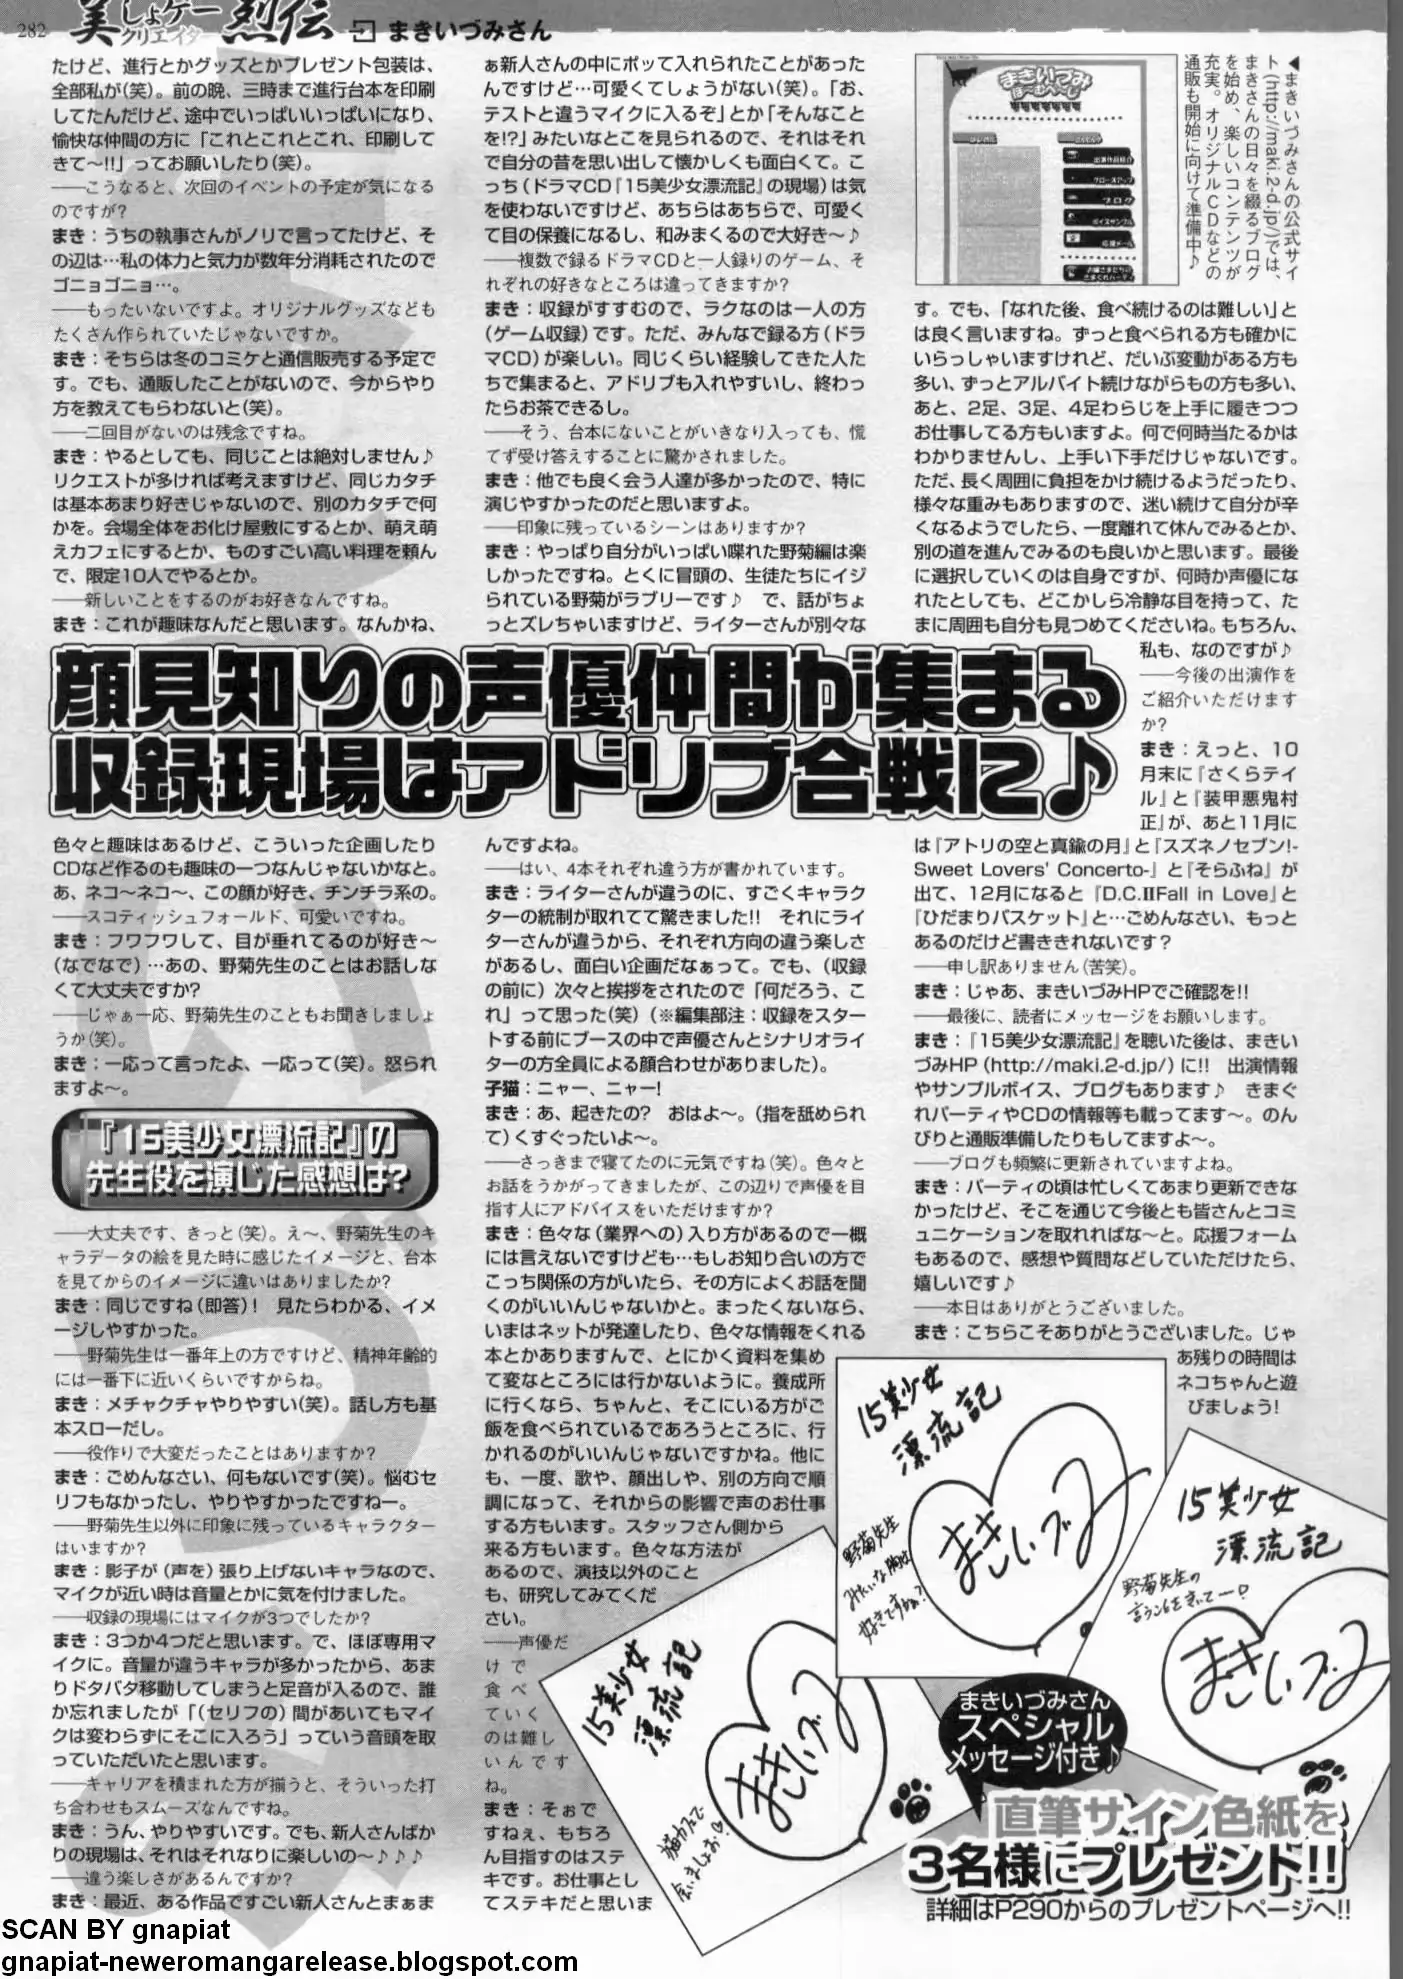 282
美しょゲー
クリエイター
烈伝
まきいづみさん
たけど、進行とかグッズとかプレゼント包装は、
全部私が(笑)。前の晩、三時まで進行台本を印刷
してたんだけど、途中でいっぱいいっぱいになり、
愉快な仲間の方に「これとこれとこれ、印刷して
きて〜!!」ってお願いしたり(笑)。
――こうなると、次回のイベントの予定が気になる
のですが?
まき：うちの執事さんがノリで言ってたけど、そ
の辺は…私の体力と気力が数年分消耗されたので
ゴニョゴニョ…。
――もったいないですよ。オリジナルグッズなども
たくさん作られていたじゃないですか。
まき：そちらは冬のコミケと通信販売する予定で
す。でも、通販したことがないので、今からやり
方を教えてもらわないと(笑)。
――二回目がないのは残念ですね。
まき：やるとしても、同じことは絶対しません♪
リクエストが多ければ考えますけど、同じカタチ
は基本あまり好きじゃないので、別のカタチで何
かを。会場全体をお化け屋敷にするとか、萌え萌
えカフェにするとか、ものすごい高い料理を頼ん
で、限定10人でやるとか。
――新しいことをするのがお好きなんですね。
まき：これが趣味なんだと思います。なんかね、
顔見知りの声優仲間が集まる
収録現場はアドリブ合戦に♪
色々と趣味はあるけど、こういった企画したり
CDなど作るのも趣味の一つなんじゃないかなと。
あ、ネコ〜ネコ〜、この顔が好き、チンチラ系の。
――スコティッシュフォールド、可愛いですね。
まき：フワフワして、目が垂れてるのが好き〜
(なでなで)…あの、野菊先生のことはお話しな
くて大丈夫ですか?
――じゃぁ一応、野菊先生のこともお聞きしましょ
うか(笑)。
まき：一応って言ったよ、一応って(笑)。怒られ
ますよ〜。
『15美少女漂流記』の
先生役を演じた感想は?
――大丈夫です、きっと(笑)。え〜、野菊先生のキ
ャラデータの絵を見た時に感じたイメージと、台本
を見てからのイメージに違いはありましたか?
まき：同じですね(即答)！　見たらわかる、イメ
ージしやすかった。
――野菊先生は一番年上の方ですけど、精神年齢的
には一番下に近いくらいですからね。
まき：メチャクチャやりやすい(笑)。話し方も基
本スローだし。
――役作りで大変だったことはありますか?
まき：ごめんなさい、何もないです(笑)。悩むセ
リフもなかったし、やりやすかったですねー。
――野菊先生以外に印象に残っているキャラクター
はいますか?
まき：影子が(声を)張り上げないキャラなので、
マイクが近い時は音量とかに気を付けました。
――収録の現場にはマイクが3つでしたか?
まき：3つか4つだと思います。で、ほぼ専用マ
イクに。音量が違うキャラが多かったから、あま
りドタバタ移動してしまうと足音が入るので、誰
か忘れましたが「(セリフの)間があいてもマイ
クは変わらずにそこに入ろう」っていう音頭を取
っていただいたと思います。
――キャリアを積まれた方が揃うと、そういった打
ち合わせもスムーズなんですね。
まき：うん、やりやすいです。でも、新人さんばか
りの現場は、それはそれなりに楽しいの〜♪♪♪
――違う楽しさがあるんですか?
まき：最近、ある作品ですごい新人さんとまぁま
ぁ新人さんの中にポッて入れられたことがあった
んですけど…可愛くてしょうがない(笑)。「お、
テストと違うマイクに入るぞ」とか「そんなこと
を!?」みたいなとこを見られるので、それはそれ
で自分の昔を思い出して懐かしくも面白くて。こ
っち(ドラマCD『15美少女漂流記』の現場)は気
を使わないですけど、あちらはあちらで、可愛く
て目の保養になるし、和みまくるので大好き〜♪
――複数で録るドラマCDと一人録りのゲーム、そ
れぞれの好きなところは違ってきますか?
まき：収録がすすむので、ラクなのは一人の方
(ゲーム収録)です。ただ、みんなで録る方(ドラ
マCD)が楽しい。同じくらい経験してきた人た
ちで集まると、アドリブも入れやすいし、終わっ
たらお茶できるし。
――そう、台本にないことがいきなり入っても、慌
てず受け答えすることに驚かされました。
まき：他でも良く会う人達が多かったので、特に
演じやすかったのだと思いますよ。
――印象に残っているシーンはありますか?
まき：やっぱり自分がいっぱい喋れた野菊編は楽
しかったですね。とくに冒頭の、生徒たちにイジ
られている野菊がラブリーです♪　で、話がちょ
っとズレちゃいますけど、ライターさんが別々な
んですよね。
――はい、4本それぞれ違う方が書かれています。
まき：ライターさんが違うのに、すごくキャラク
ターの統制が取れてて驚きました!!　それにライ
ターさんが違うから、それぞれ方向の違う楽しさ
があるし、面白い企画だなぁって。でも、(収録
の前に)次々と挨拶をされたので「何だろう、こ
れ」って思った(笑)(※編集部注：収録をスター
トする前にブースの中で声優さんとシナリオライ
ターの方全員による顔合わせがありました)。
子猫：ニャー、ニャー!
まき：あ、起きたの?　おはよ〜。(指を舐められ
て)くすぐったいよ〜。
――さっきまで寝てたのに元気ですね(笑)。色々と
お話をうかがってきましたが、この辺りで声優を目
指す人にアドバイスをいただけますか?
まき：色々な(業界への)入り方があるので一概
には言えないですけども…もしお知り合いの方で
こっち関係の方がいたら、その方によくお話を聞
くのがいいんじゃないかと。まったくないなら、
いまはネットが発達したり、色々な情報をくれる
本とかありますんで、とにかく資料を集め
て変なところには行かないように。養成所
に行くなら、ちゃんと、そこにいる方がご
飯を食べられているであろうところに、行
かれるのがいいんじゃないですかね。他に
も、一度、歌や、顔出しや、別の方向で順
調になって、それからの影響で声のお仕事
する方もいます。スタッフさん側から
来る方もいます。色々な方法が
あるので、演技以外のこと
も、研究してみてくだ
さい。
――声優だ
けで
食べ
ていく
のは難し
いんです
ね。
まき：そぉで
すねぇ、もちろ
ん目指すのはステ
キです。お仕事とし
てステキだと思いま
◀まきいづみさんの公式サイ
ト(http://maki.2-d.jp/)では、
まきさんの日々を綴るブログ
を始め、楽しいコンテンツが
充実。オリジナルCDなどの
通販も開始に向けて準備中♪
まきいづみ
ほーむぺーじ
出演作品紹介
クローズアップ
ブログ
ボイスサンプル
応援メール
す。でも、「なれた後、食べ続けるのは難しい」と
は良く言いますね。ずっと食べられる方も確かに
いらっしゃいますけれど、だいぶ変動がある方も
多い、ずっとアルバイト続けながらもの方も多い、
あと、2足、3足、4足わらじを上手に履きつつ
お仕事してる方もいますよ。何で何時当たるかは
わかりませんし、上手い下手だけじゃないです。
ただ、長く周囲に負担をかけ続けるようだったり、
様々な重みもありますので、迷い続けて自分が辛
くなるようでしたら、一度離れて休んでみるとか、
別の道を進んでみるのも良いかと思います。最後
に選択していくのは自身ですが、何時か声優にな
れたとしても、どこかしら冷静な目を持って、た
まに周囲も自分も見つめてくださいね。もちろん、
私も、なのですが♪
――今後の出演作を
ご紹介いただけます
か?
まき：えっと、10
月末に『さくらテイ
ル』と『装甲悪鬼村
正』が、あと11月に
は『アトリの空と真鍮の月』と『スズネノセブン!-
Sweet Lovers' Concerto-』と『そらふね』が
出て、12月になると『D.C.ⅡFall in Love』と
『ひだまりバスケット』と…ごめんなさい、もっと
あるのだけど書ききれないです?
――申し訳ありません(苦笑)。
まき：じゃあ、まきいづみHPでご確認を!!
――最後に、読者にメッセージをお願いします。
まき：『15美少女漂流記』を聴いた後は、まきい
づみHP(http://maki.2-d.jp/)に!!　出演情報
やサンプルボイス、ブログもあります♪　きまぐ
れパーティやCDの情報等も載ってます〜。のん
びりと通販準備したりもしてますよ〜。
――ブログも頻繁に更新されていますよね。
まき：パーティの頃は忙しくてあまり更新できな
かったけど、そこを通じて今後とも皆さんとコミ
ュニケーションを取れればな〜と。応援フォーム
もあるので、感想や質問などしていただけたら、
嬉しいです♪
――本日はありがとうございました。
まき：こちらこそありがとうございました。じゃ
あ残りの時間は
ネコちゃんと遊
びましょう!
15美少女
漂流記
まきいづみ
野菊先生
みたいな胸は
好きですか?
15美少女
漂流記
野菊先生の
言うこときいてー♡
まきいづみ
15美少女
漂流記
まきいづみ
猫カフェで
会いましょお♡
まきいづみさん
スペシャル
メッセージ付き♪
直筆サイン色紙を
3名様にプレゼント!!
詳細はP290からのプレゼントページへ!!
SCAN BY gnapiat
gnapiat-neweromangarelease.blogspot.com